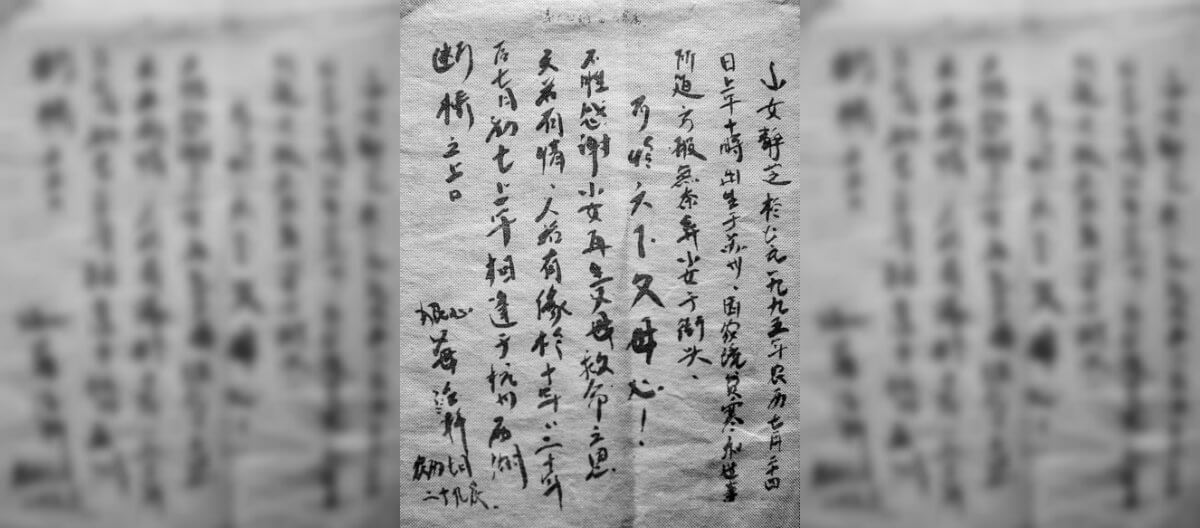 小女靜芝於公元一九九五年农历七月二十四
日上午十時出生于苏州、因家境贫寒和世事
所迫万般無奈弃小女于街头、
可怜天下父母心！
不胜感谢小女再生父母救命之恩
天若有情、人若有缘於十年、二十年
后七月初七上午相逢于杭州西湖
断橋之上
狠心父母
农历七月
二十九晨.